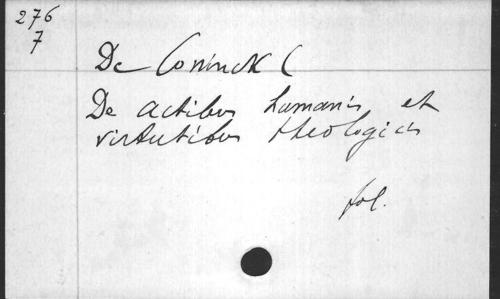 276
7
De Coninck C
De actibus humanis et
virtutibus theologicis
fol.